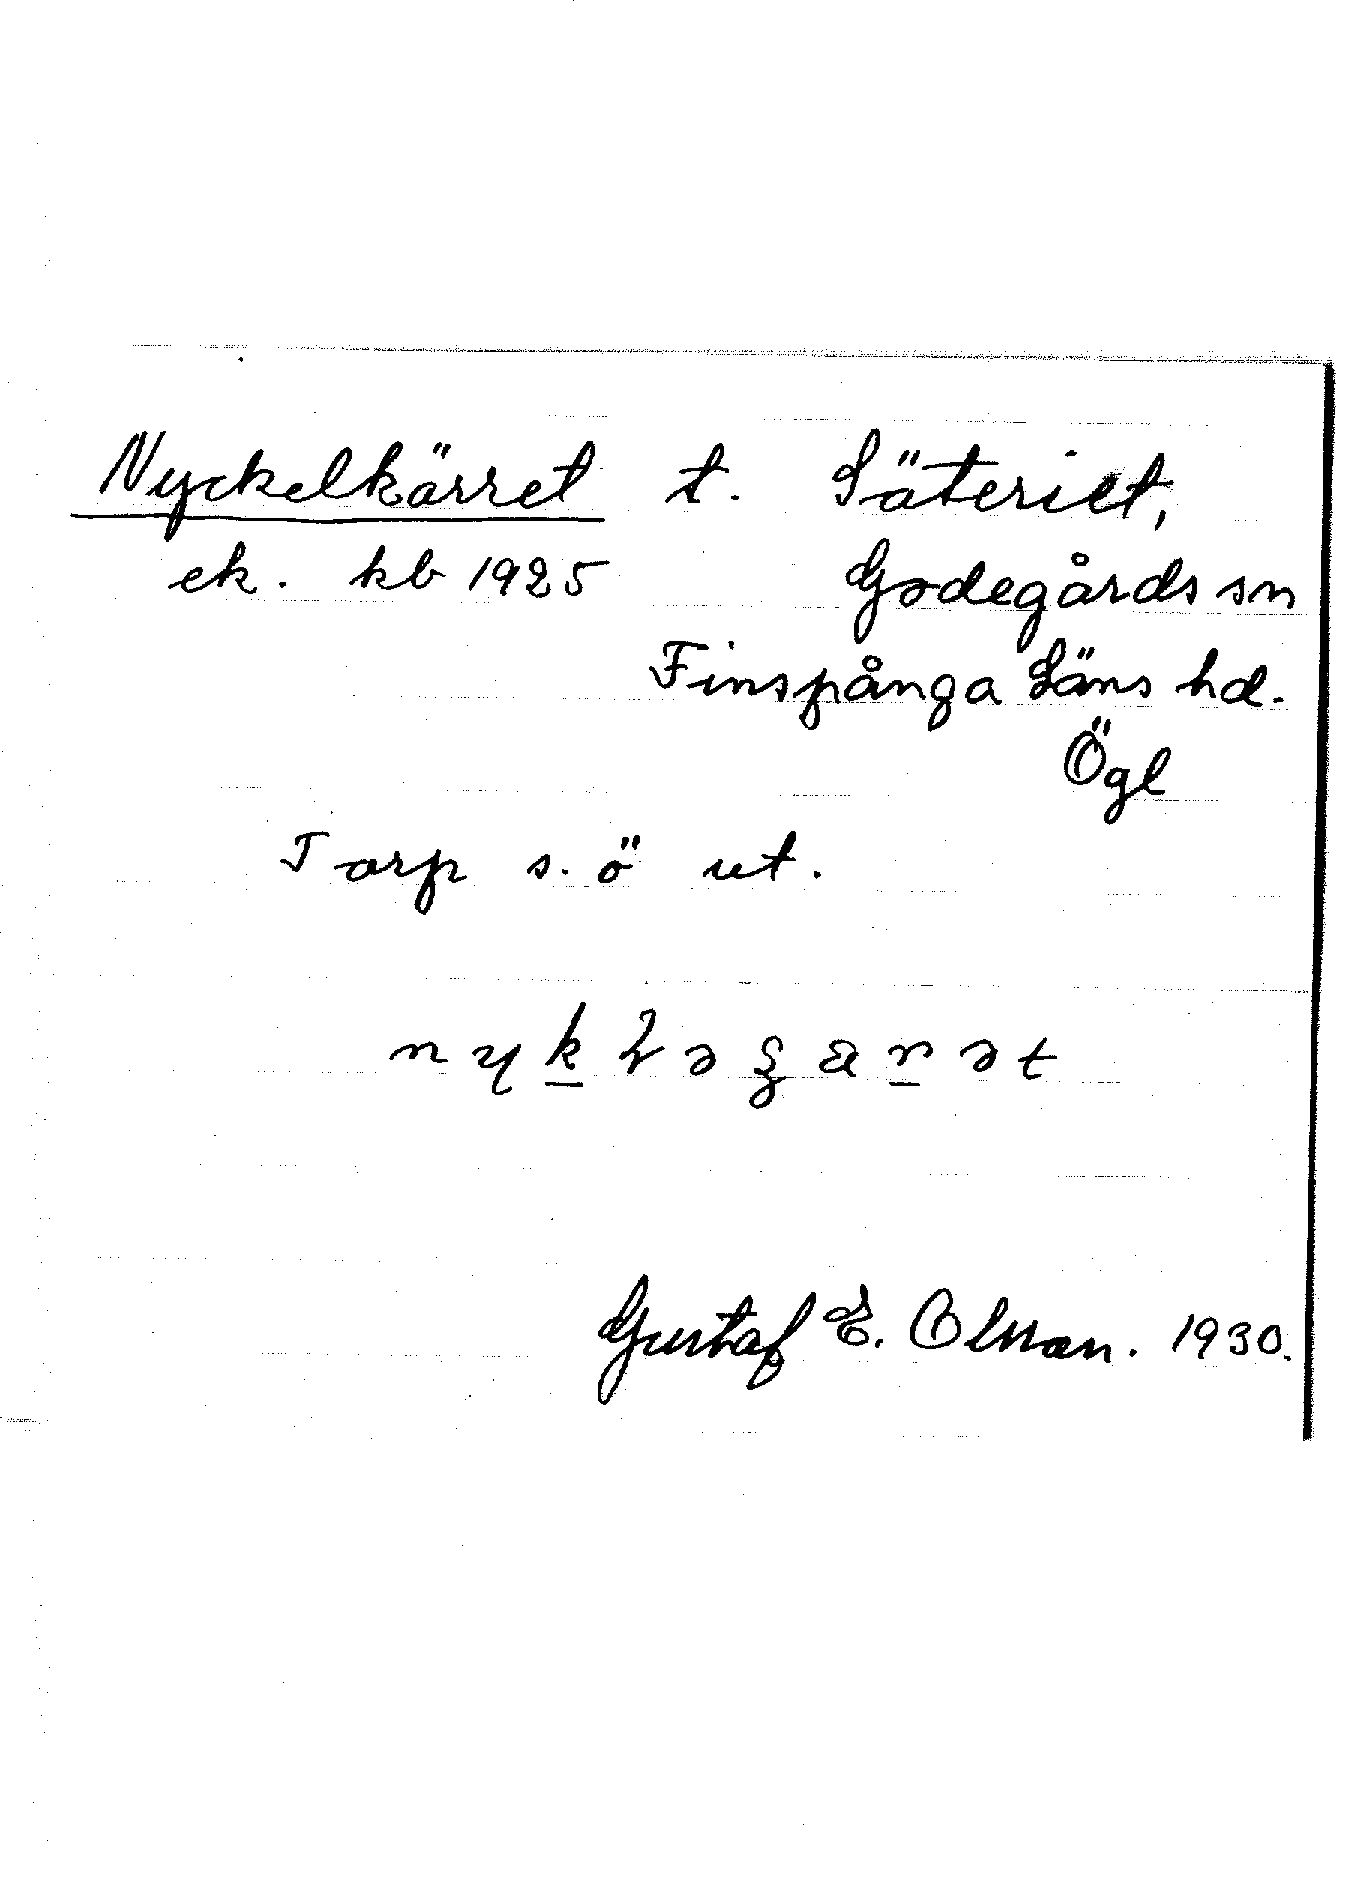 Nyckelkärret t. Säteriet,
ek. kb 1925 Godegårds sn
Finspånga Läns hd.
Ögl
Torp s.ö ut.
Gustaf E. Olsson. 1930.